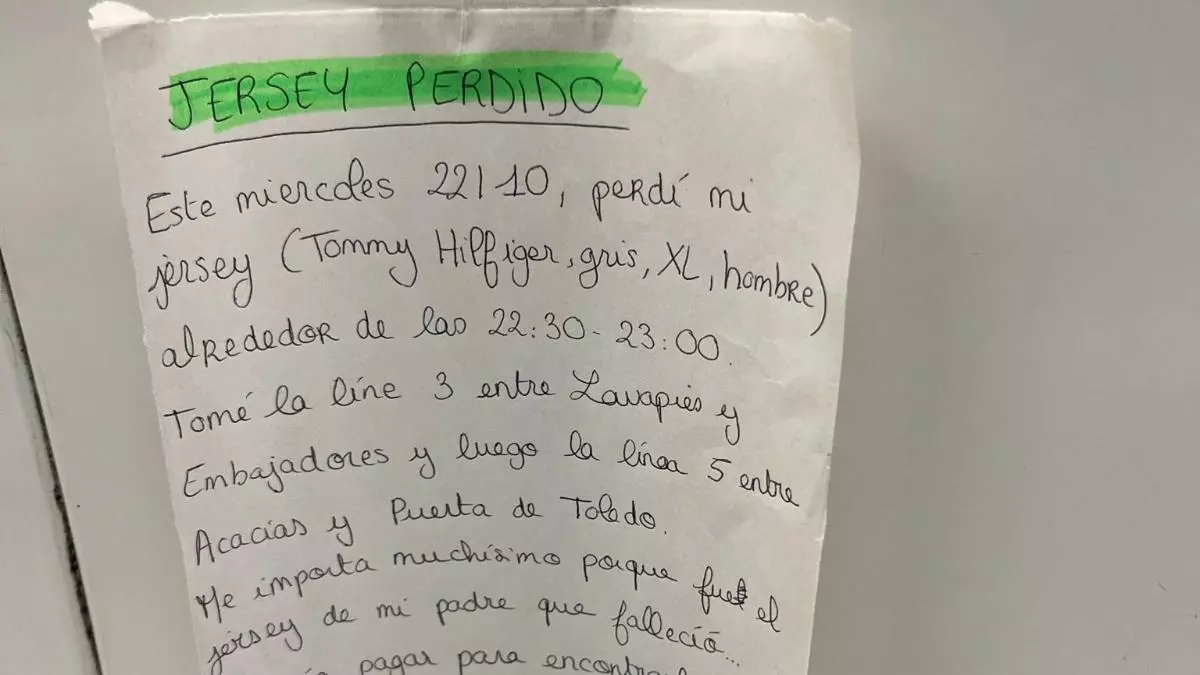 JERSEY PERDIDO
Este miercoles 22/10, perdí mi
jersey (Tommy Hilfiger, gris, XL, hombre)
alrededor de las 22:30-23:00.
Tomé la líne 3 entre Lavapiés y
Embajadores y luego la línea 5 entre
Acacias y Puerta de Toledo.
Me importa muchísimo porque fue el
jersey de mi padre que falleció...
pagar para